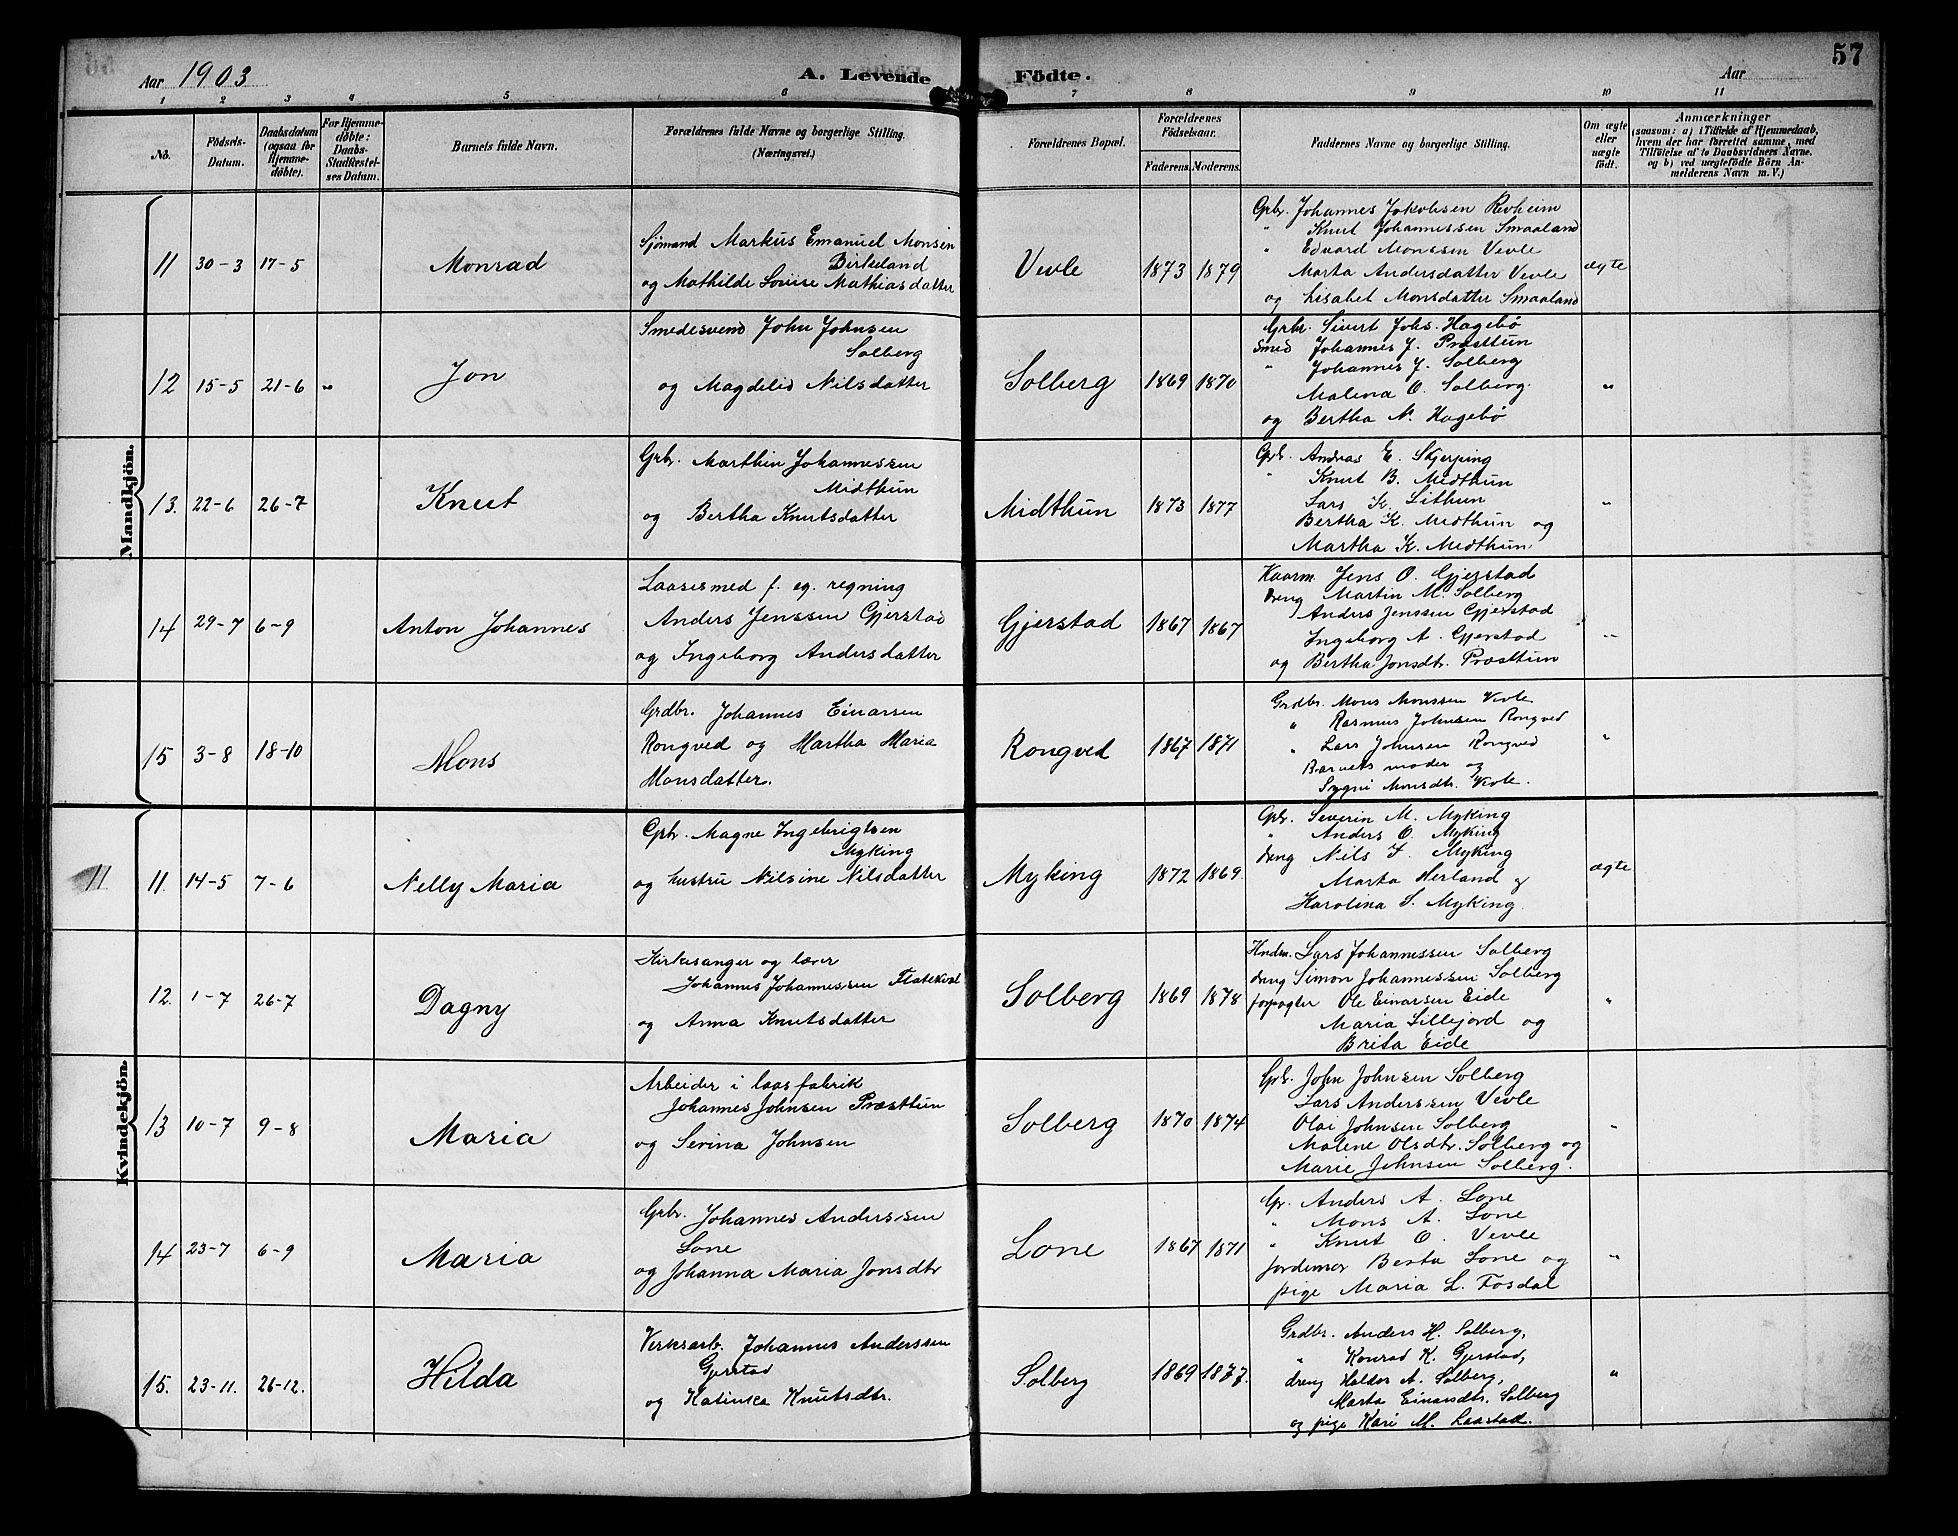 57
Aar 1903
A. Levende
Födte.
Aar
1 2 3 4 5 6 7 8 9 10 11
No.
Födsels-
Datum.
Daabsdatum
(ogsaa for
Hjemme-
döbte).
For Hjemme-
döbte:
Daabs-
Stadfæstel-
ses Datum.
Barnets fulde Navn.
Forældrenes fulde Navne og borgerlige Stilling.
(Næringsvei.)
Forældrenes Bopæl.
Forældrenes
Födselsaar.
Faderens.
Moderens.
Faddernes Navne og borgerlige Stilling.
Om ægte
eller
uægte
födt.
Anmærkninger
(saasom: a) i Tilfælde af Hjemmedaab,
hvem der har forrettet samme, med
Tilföielse af to Daabsvidners Navne,
og b) ved uægtefödte Börn An-
melderens Navn m. V.)
Mandkjön.
11 30-3 17-5
Monrad
Sjømand Markus Emanuel Monsen
Birkeland
og Mathilde Louise Mathiasdatter
Vevle
1873 1879
Grbr. Johannes Jakobsen Revheim
" Knut Johannessen Smaaland
" Edvard Monssen Vevle
Marta Andersdatter Vevle
og Lisabet Monsdatter Smaaland
ægte
12 15-5 21-6 "
Jon
Smedesvend John Johnsen
Solberg
og Magdeli Nilsdatter
Solberg
1869 1870
Grbr. Sivert Johs. Hagebø
Smed Johannes J. Præsttun
" Johannes J. Solberg
Malena O. Solberg
og Bertha N. Hagebø
"
13. 22-6 26-7
Knut
Grbr. Marthin Johannessen
Midthun
og Bertha Knutsdatter
Midthun
1873 1877
Grb. Andreas E. Skjerping
" Knut B. Midthun
Lars K. Lithun
Bertha K. Midthun og
Martha K. Midthun
"
14 29-7 6-9
Anton Johannes
Laasesmed f. eg. regning
Anders Jenssen Gjerstad
og Ingeborg Andersdatter
Gjerstad
1867 1867
Kaarm. Jens O. Gjerstad
Dreng Martin M. Solberg
Anders Jenssen Gjerstad
Ingeborg A. Gjerstad
og Bertha Jonsdtr. Præsttun
"
15 3-8 18-10
Mons
Grdbr. Johannes Einarsen
Rongved og Martha Maria
Monsdatter.
Rongved
1867 1871
Grdbr. Mons Monssen Vevle
" Rasmus Johnsen Rongved
" Lars Johnsen Rongved
Barnets moder og
Sygni Monsdtr. Vevle.
"
Kvindekjön.
11
11. 14-5 7-6
Nelly Maria
Grb. Magne Ingebrigtsen
Myking
og hustru Nilsine Nilsdatter
Myking
1872 1869
Grb. Severin M. Myking
" Anders O. Myking
dreng Nils I. Myking
Marta Herland og
Karolina S. Myking
ægte
12. 1-7 26-7
Dagny
Kirkesanger og lærer
Johannes Johannessen Flatekval
og Anna Knutsdatter
Solberg
1869 1878
Hndm. Lars Johannessen Solberg
dreng Simon Johannessen Solberg
forpagter Ole Einarsen Eide
Maria Lillejord og
Brita Eide
"
13 10-7 9-8
Maria
Arbeider i laasfabrik
Johannes Johnsen Præsttun
og Serina Johnsen
Solberg
1870 1874
Grb. John Johnsen Solberg
Lars Anderssen Vevle
Olai Johnsen Solberg
Malene Olsdtr. Solberg og
Marie Johnsen Solberg.
"
14 23-7 6-9
Maria
Grbr. Johannes Anderssen
Lone
og Johanna Maria Jonsdtr
Lone
1867 1871
Gr. Anders A. Lone
" Mons A. Lone
" Knut O. Vevle
jordemor Berta Lone og
pige Maria L. Fosdal
"
15. 23-11. 26-12.
Hilda
Verksarb. Johannes Anderssen
Gjerstad
og Katinka Knutsdtr.
Solberg
1869 1877.
Grdbr. Anders H. Solberg,
" Konrad K. Gjerstad,
dreng Haldor A. Solberg,
Marta Einarsdtr. Solberg
og pige Kari M. Laastad.
"